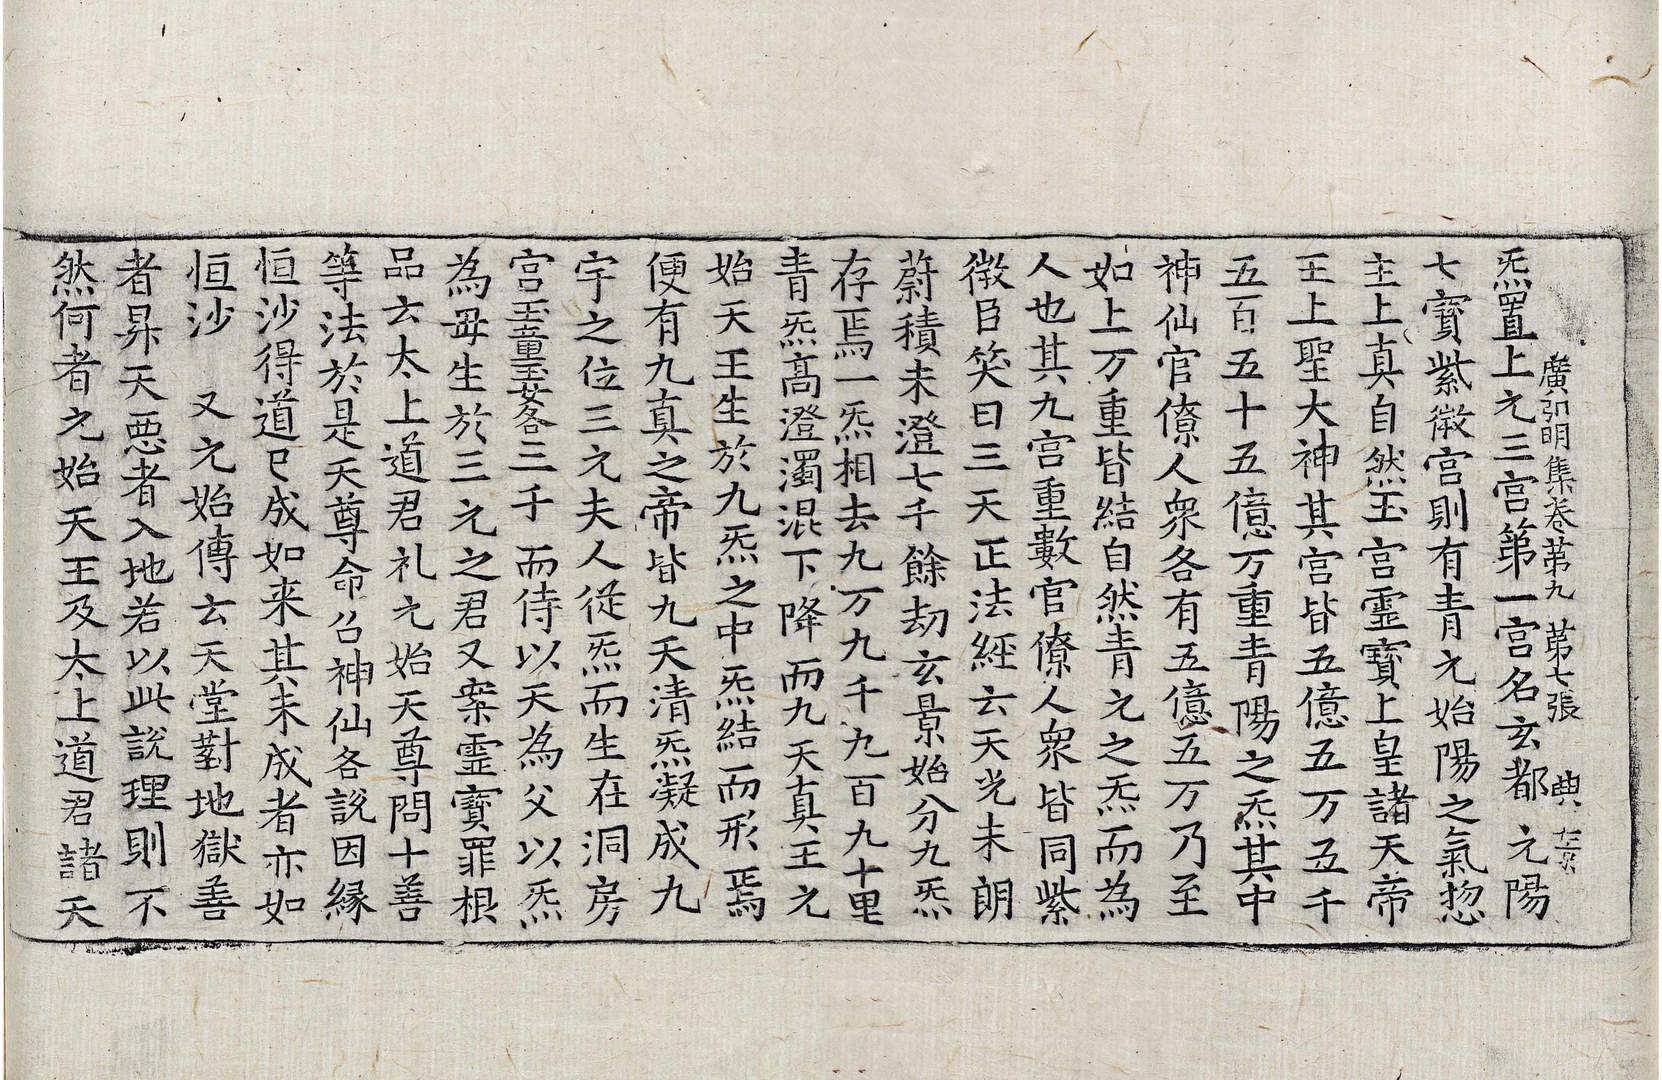 廣弘明集卷第九 第七張 典
炁置上元三宮第一宮名玄都 元陽
七寳紫微宮則有青元始陽之氣惣
主上真自然玉宮靈寳上皇諸天帝
王上聖大神其宮皆五億五万五千
五百五十五億万重青陽之炁其中
神仙官僚人衆各有五億五万乃至
如上万重皆結自然青元之炁而為
人也其九宮重數官僚人衆皆同紫
微臣笑曰三天正法經云天光未朗
蔚積未澄七千餘劫玄景始分九炁
存焉一炁相去九万九千九百九十里
青炁高澄濁混下降而九天真王元
始天王生於九炁之中炁結而形焉
便有九真之帝皆九天清炁凝成九
宇之位三元夫人從炁而生在洞房
宮玉童玉女各三千而侍以天為父以炁
為毋生於三元之君又案靈寳罪根
品云太上道君礼元始天尊問十善
等法於是天尊命召神仙各說因縁
恒沙得道已成如来其未成者亦如
恒沙 又元始傳云天堂對地獄善
者昇天惡者入地若以此說理則不
然何者元始天王及太上道君諸天